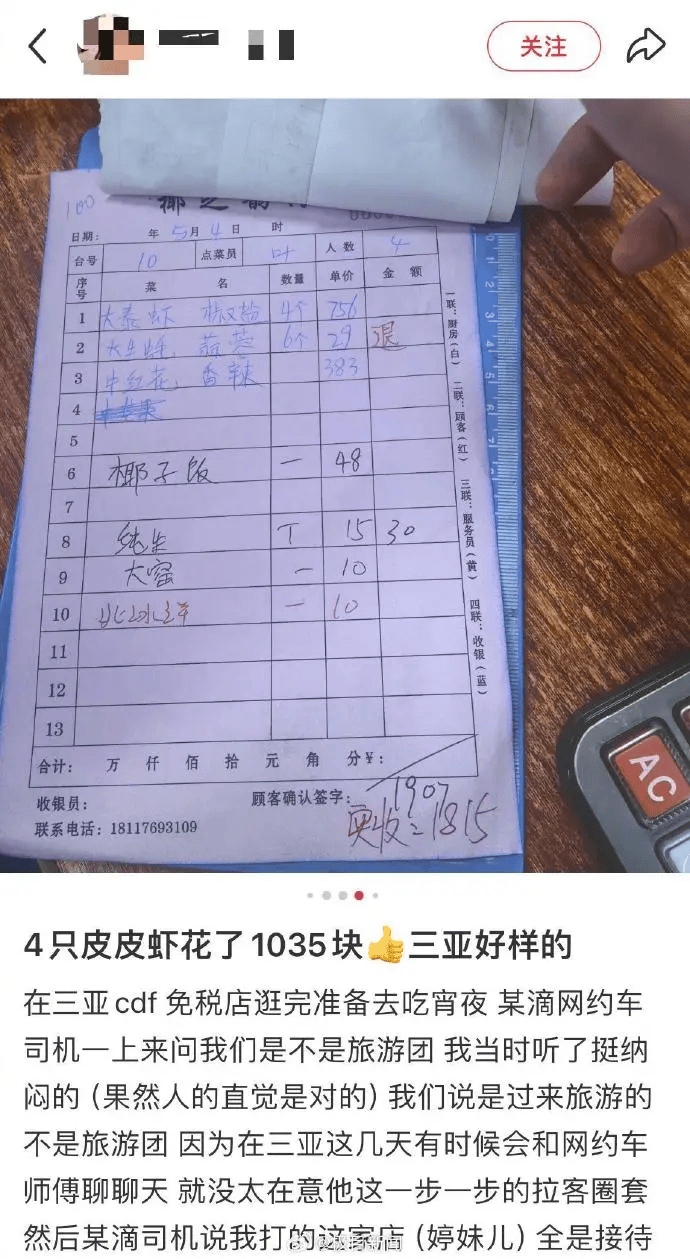 关注
100
日期: 年 5 月 4 日 时
台号 10 点菜员 叶 人数 4
序号 菜 名 数量 单价 金额
1 大泰虾 椒盐 4个 256
2 大生蚝, 蒜蓉 6个 29 退
3 牛红花, 香辣 383
4
5
6 椰子饭 一 48
7
8 纯生 T 15 30
9 大窑 一 10
10 北冰洋 一 10
11
12
13
合计: 万 仟 佰 拾 元 角 分¥:
1907
收银员: 顾客确认签字:
实收:1815
联系电话: 18117693109
一联:厨房(白) 二联:顾客(红) 三联:服务员(黄) 四联:收银(蓝)
0 1 2 3 4 5 6 7
AC
4只皮皮虾花了1035块👍三亚好样的
在三亚cdf 免税店逛完准备去吃宵夜 某滴网约车
司机一上来问我们是不是旅游团 我当时听了挺纳
闷的(果然人的直觉是对的)我们说是过来旅游的
不是旅游团 因为在三亚这几天有时候会和网约车
师傅聊聊天 就没太在意他这一步一步的拉客圈套
然后某滴司机说我打的这家店(婷妹儿)全是接待